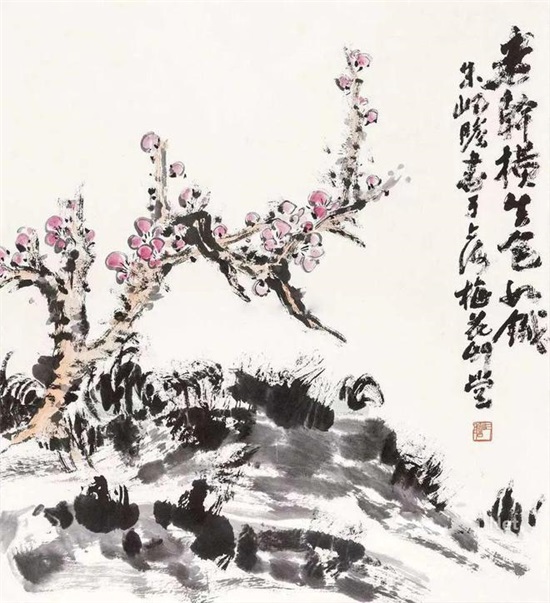 老幹橫生色如鐵
朱屺瞻畫于上海梅花草堂